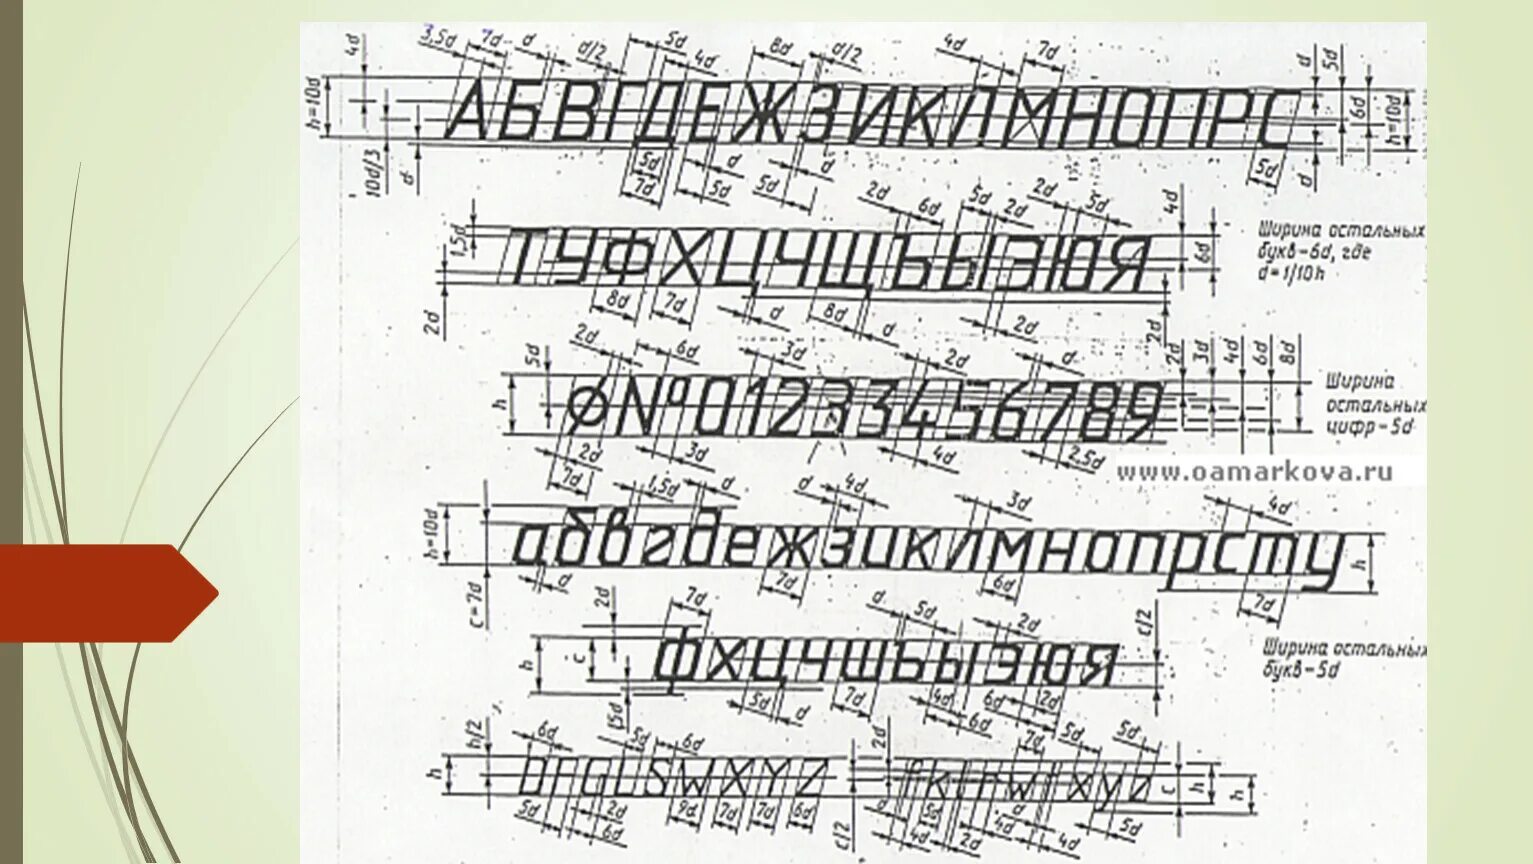 3,5d 7d d d/2 5d 4d 8d d/2 4d 7d d 5d
4d h=10d АБВГДЕЖЗИКЛМНОПРС 6d h=10d
10d/3 d 5d 7d d 5d 5d d 5d d
2d 6d 5d 2d 2d 5d 4d
1,5d ТУФХЦЧШЪЫЭЮЯ 6d
Ширина остальных
букв-6d, где
d=1/10h
2d 8d 7d d 8d d 2d 2d
5d 2d 6d 3d 2d d 2d 3d 4d 6d 8d
h Ø№01233456789
Ширина
остальных
цифр-5d
2d 7d 3d 4d 2,5d
www.oamarkova.ru
1,5d d d 4d 3d 4d
h=10d абвгдежзиклмнопрсту h
c=7d d 7d 6d 7d
2d 7d d 5d 2d c/2
h c фхцчшъыэюя
Ширина остальных
букв-5d
5d d 7d 4d 6d 6d 2d
h/2 6d 5d 6d 2d 7d 5d 5d
h c h h
5d 2d 6d 9d 7d 7d 6d c/2 d 4d 2d 4d d 4d 5d